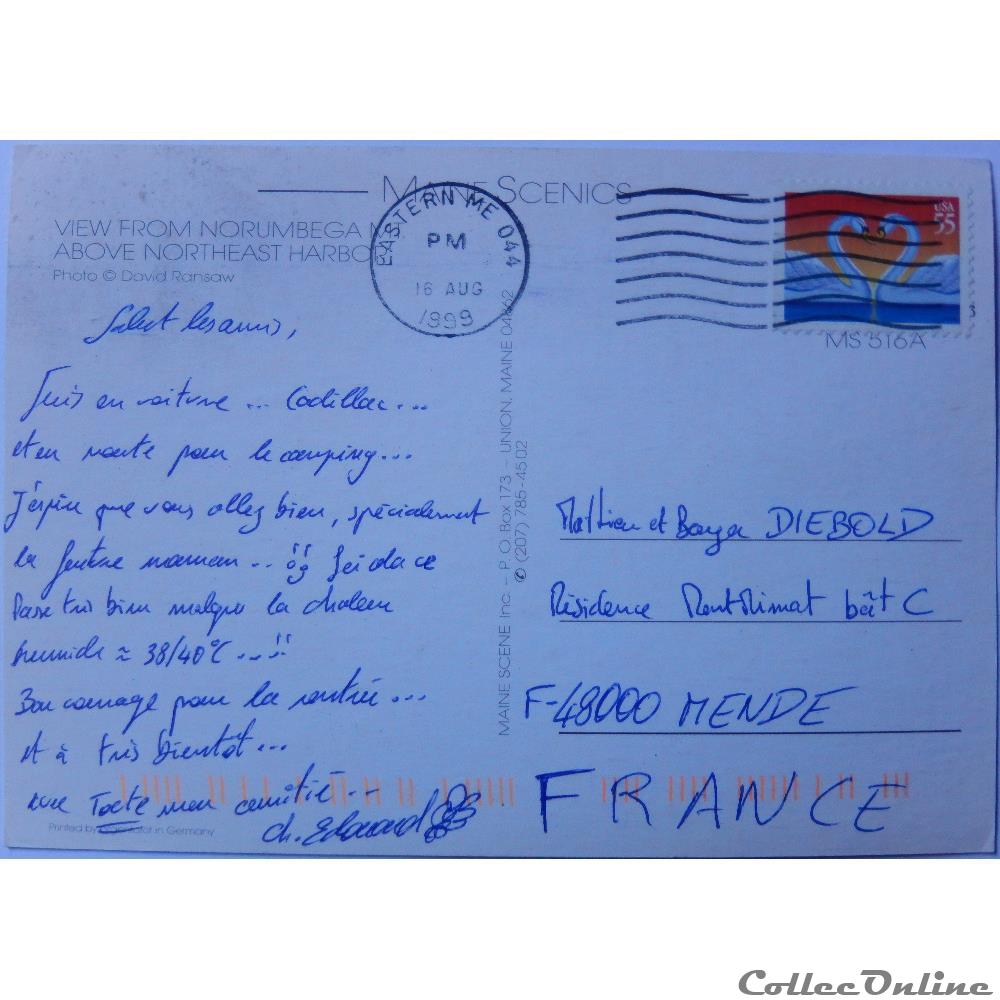 MAINE SCENICS
VIEW FROM NORUMBEGA M
ABOVE NORTHEAST HARBO
Photo © David Ransaw
EASTERN ME 044
PM
16 AUG
1999
USA
55
MS 516A
3
MAINE SCENE Inc. – P.O. Box 173 – UNION, MAINE 04862
✆ (207) 785-4502
Salut les amis,
Suis en voiture ... Cadillac ...
et en route pour le camping...
J'espère que vous allez bien, spécialement
la future maman...
Passe très bien malgré la chaleur
humide ≈ 38/40°C ...
Bon courage pour la rentrée ...
et à très bientôt ...
avec Toute mon amitié --
ch. Edouard
Printed by in Germany
Mathieu et DIEBOLD
Résidence MontMimat bât C
F-48000 MENDE
FRANCE
CollecOnline